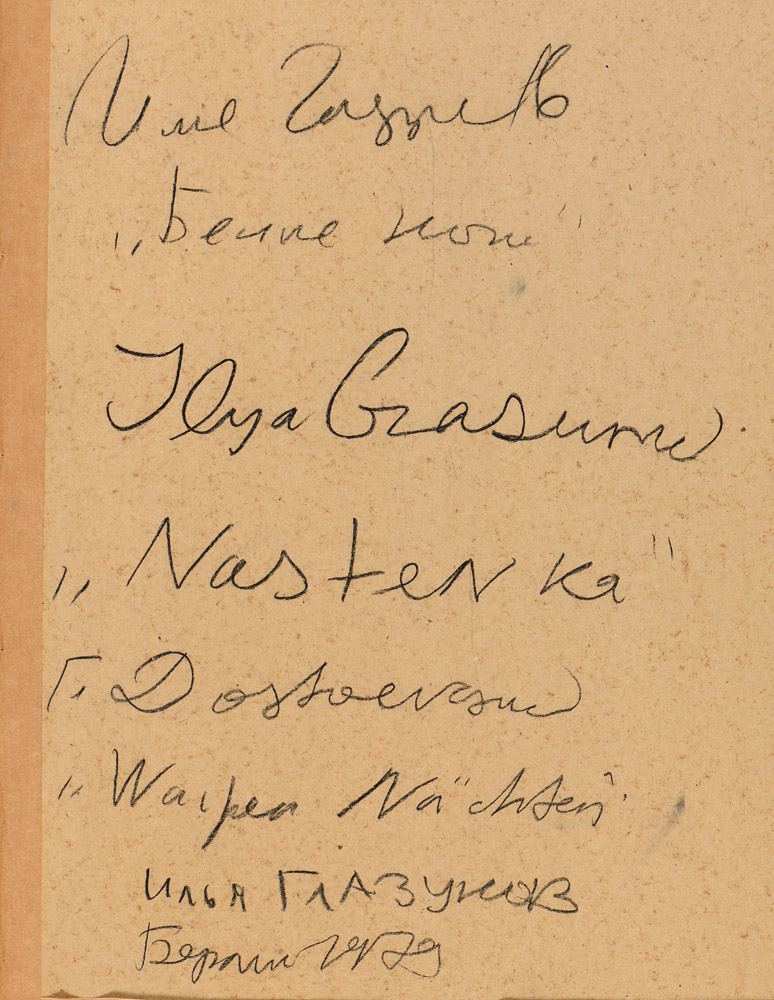 Илья Глазунов
„Белые ночи"
Ilya Glasunov
„Nastenka"
F. Dostoevski
Nächten"
Илья ГЛАЗУНОВ
Берлин 1979